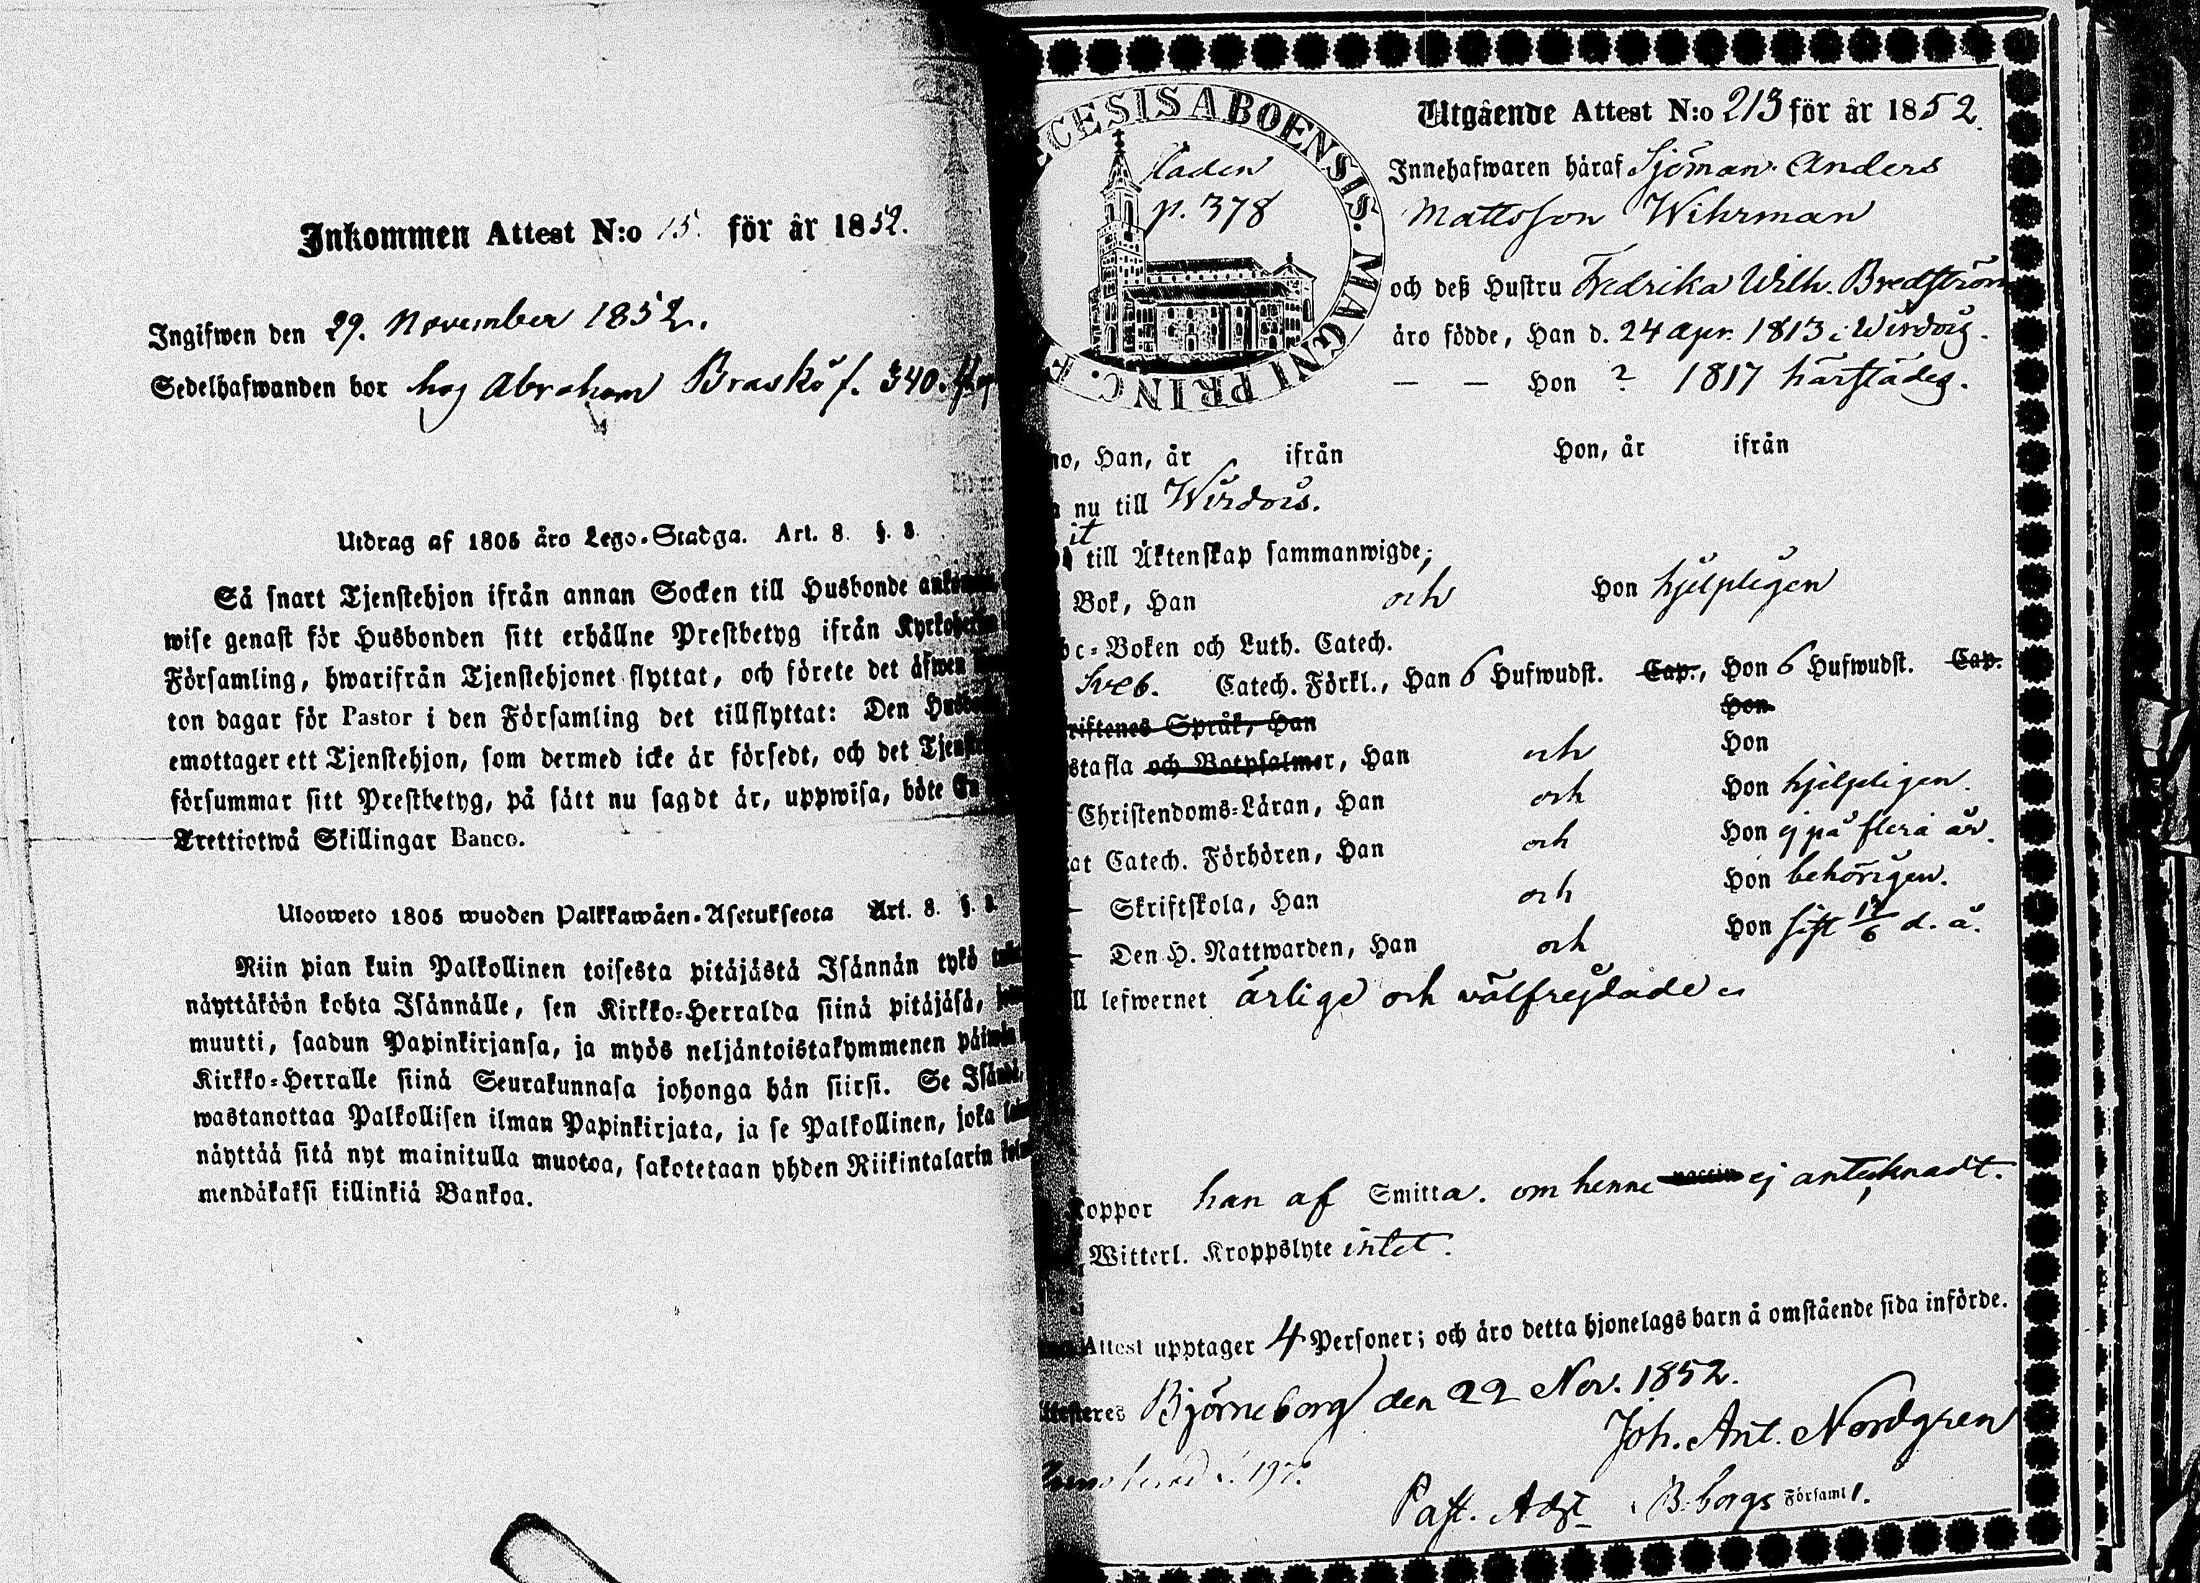 Inkommen Attest N:o 15. för år 1852.
Ingifwen den 29. November 1852.
Sedelhafwanden bor hog Abraham Braskö f. 340.
Utdrag af 1805 års Lego-Stadga. Art. 8. §. 8.
Så snart Tjenstehjon ifrån annan Socken till Husbonde
wise genast för Husbonden sitt erhållne Prestbetyg ifrån
Församling, hwarifrån Tjenstehjonet flyttat, och förete det äfwen
ton dagar för Pastor i den Församling det tillflyttat: Den
emottager ett Tjenstehjon, som dermed icke är försedt, och det
försummar sitt Prestbetyg, på sätt nu sagdt är, uppwisa, böte En
Trettiotwå Skillingar Banco.
Ulosweto 1805 wuoden Palkkawäen-Asetuksesta Art. 8. §. 8.
Niin pian kuin Palkollinen toisesta pitäjästä Isännän tykö
näyttäköön kohta Isännälle, sen Kirkko-Herralda siinä pitäjäsä,
muutti, saadun Papinkirjansa, ja myös neljäntoistakymmenen
Kirkko-Herralle siinä Seurakunnasa johonga hän siirsi. Se
wastanottaa Palkollisen ilman Papinkirjata, ja se Palkollinen, joka
näyttää sitä nyt mainitulla muotoa, sakotetaan yhden Riikintalarin
mendäkaksi killinkiä Bankoa.
CESIS ABOENSIS. MAGNI PRINC. F
Staden
p. 378
Utgående Attest N:o 213 för år 1852.
Innehafwaren häraf Sjöman Anders
Mattsson Wihrman
och deß Hustru Fredrika Wilh. Bredström
äro födde, Han d. 24 apr. 1813 i Wirdois.
— — Hon ? 1817 härstädes.
no, Han, år ifrån Hon, år ifrån
nu till Wirdois.
it
till Äktenskap sammanwigde;
Bok, Han och Hon hjelpligen
bc-Boken och Luth. Catech.
Sveb. Catech. Förkl., Han 6 Hufwudst. Cap., Hon 6 Hufwudst. Cap.
riftenes Språk, Han Hon
stafla och Botpsalmer, Han och Hon
Christendoms-Läran, Han och Hon hjelpligen.
at Catech. Förhören, Han och Hon ej på flera år.
— Skriftskola, Han och Hon behörigen.
— Den H. Nattwarden, Han och Hon sist 17/6 d. å.
ll lefwernet ärlige och wälfrejdade
Koppor han af Smitta. om henne ej antecknadt.
Witterl. Kroppslyte intet.
Attest upptager 4 Personer; och äro detta hjonelags barn å omstående sida införde.
Attesteres Björneborg den 22 Nov. 1852.
Joh. Ant. Nordgren
Past. Adj. i B:borgs Församl.